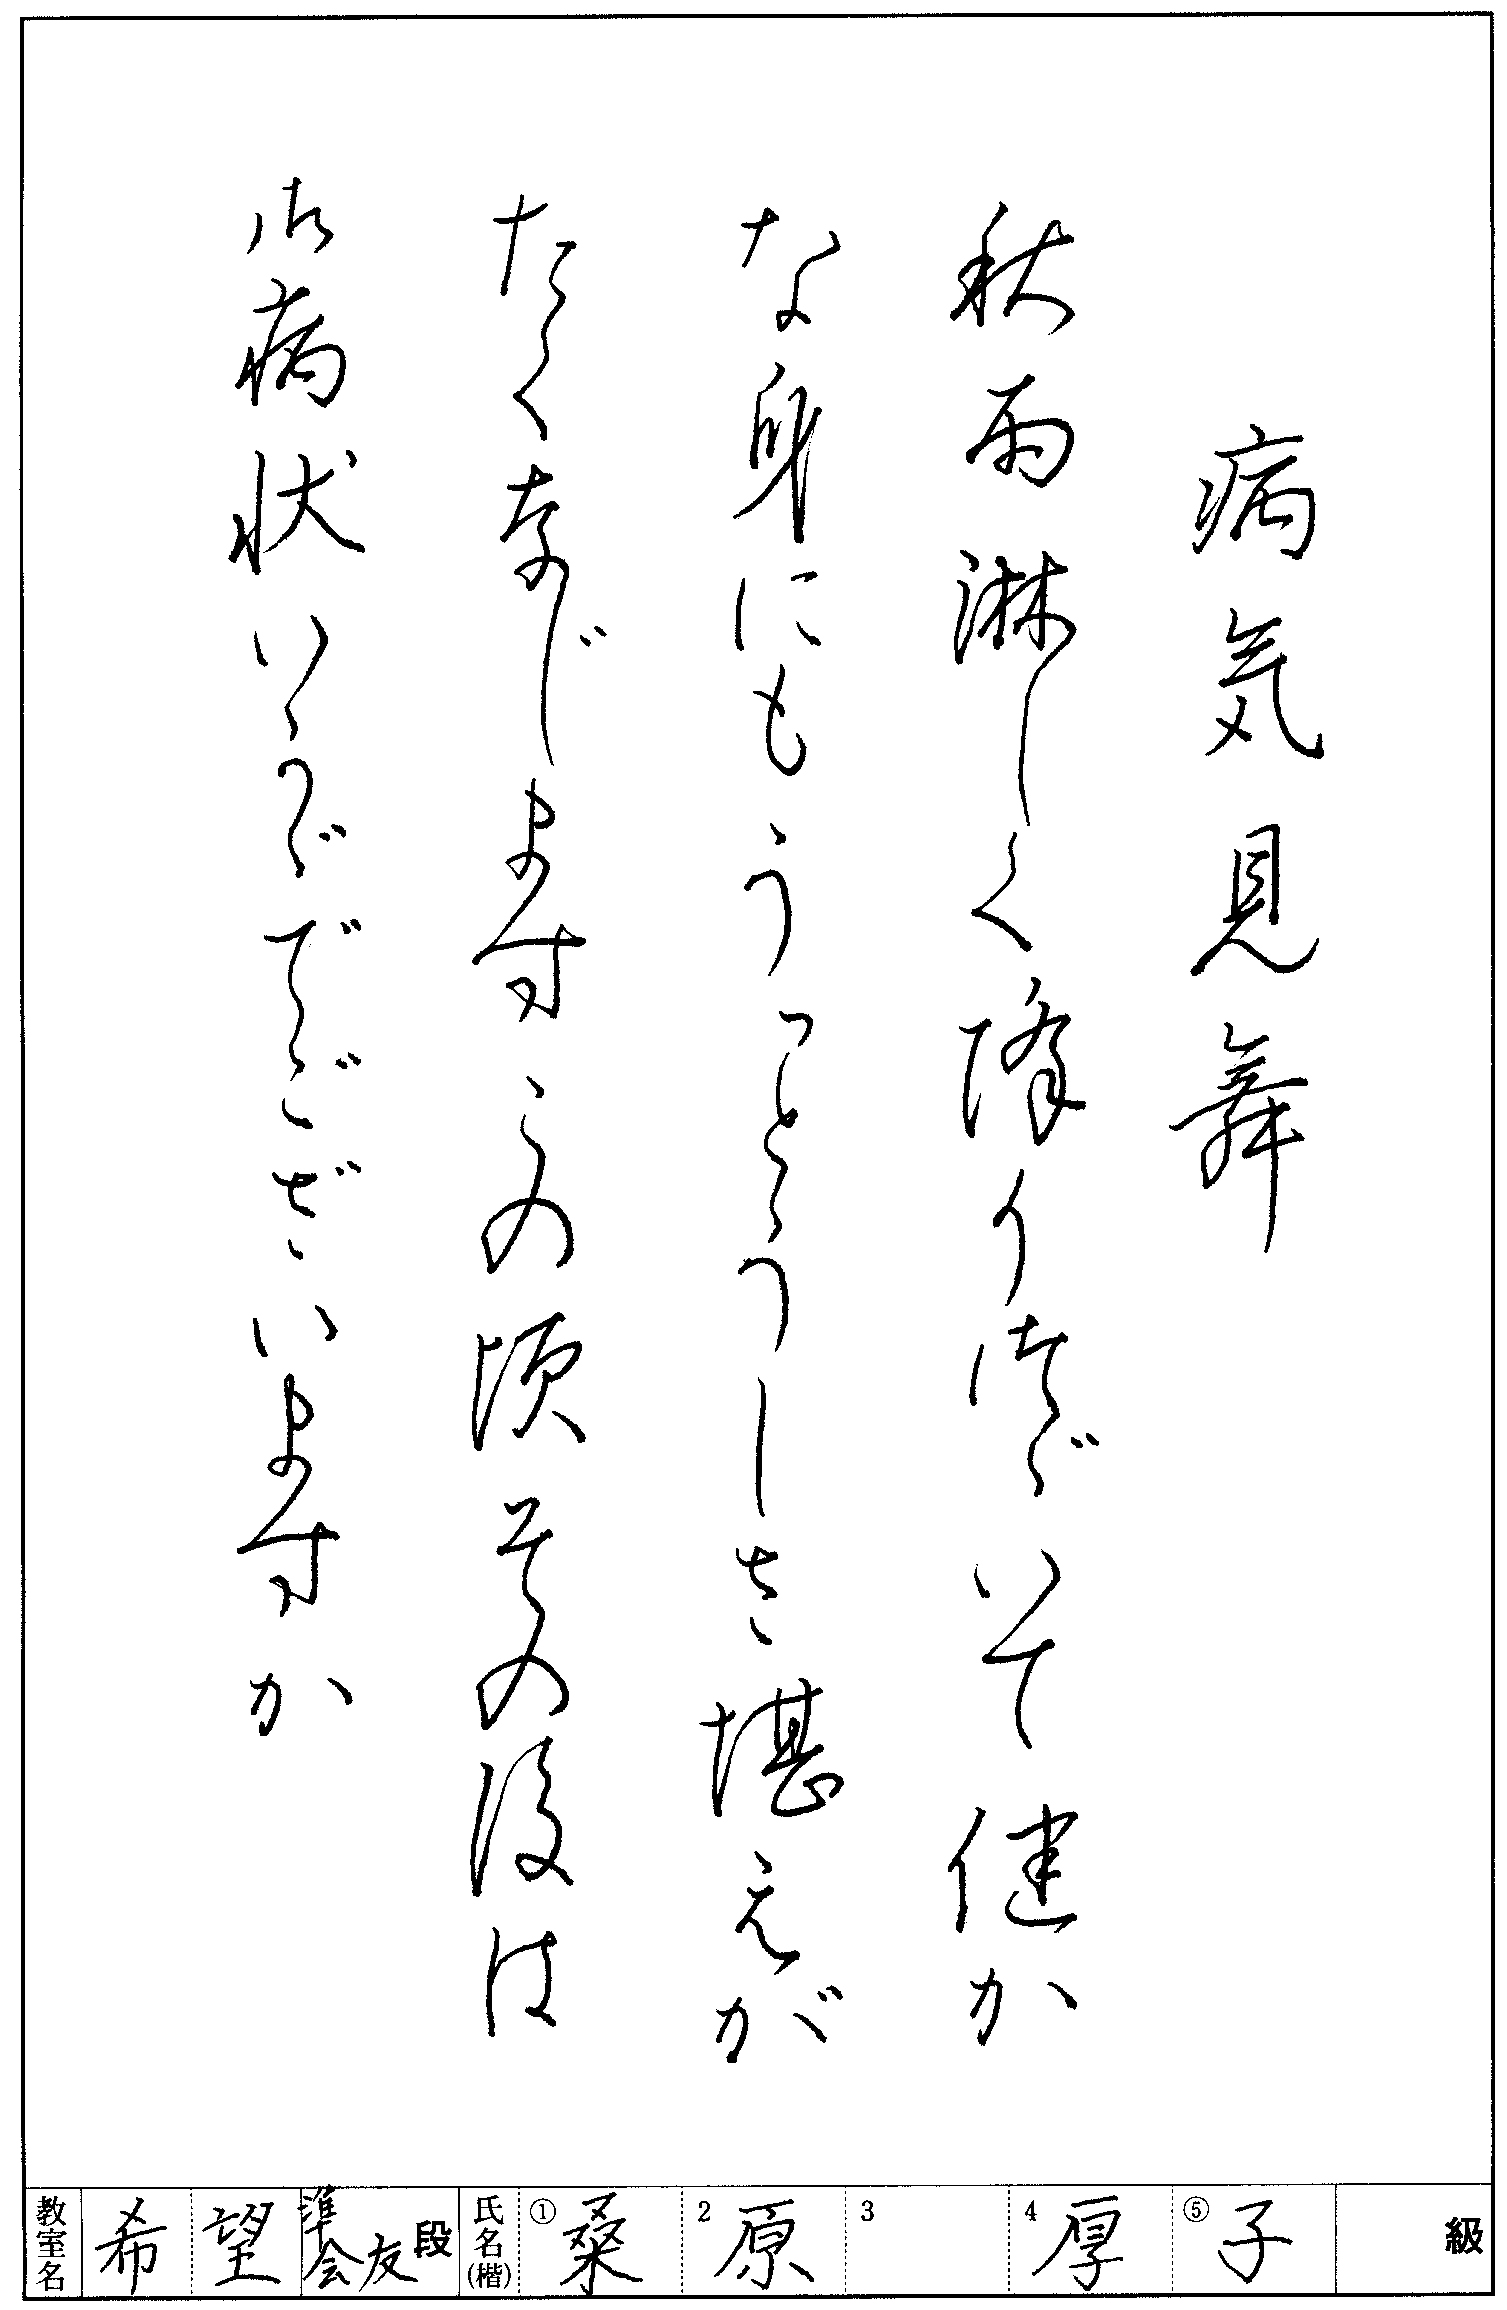 病気見舞
秋雨淋しく降りつづいて健か
な身にもうっとうしさ堪えが
たく存じますこの頃その後は
御病状いかがでございますか
教室名 希望 準会友 段 氏名(楷) ① 桑 2 原 3 4 厚 ⑤ 子 級